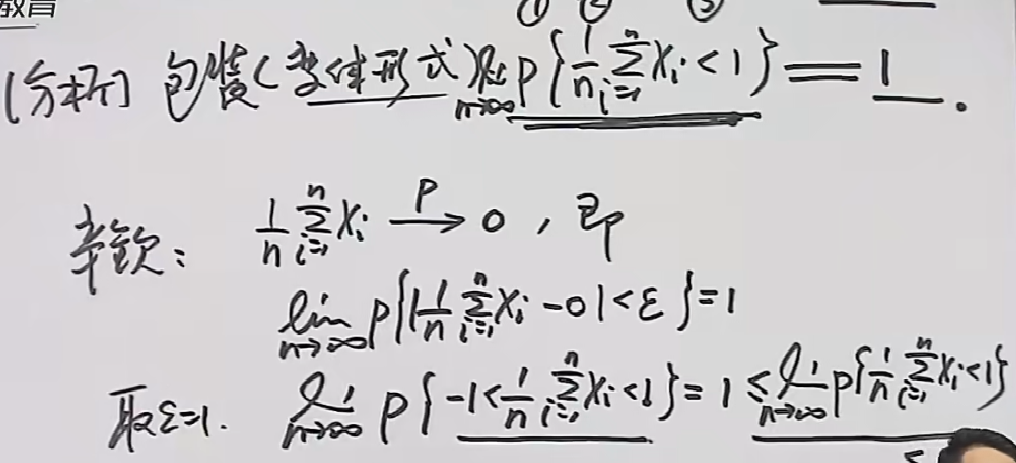 教育
① ② ③
[分析] 包装(变体形式) lim n→∞ P{1/n ∑ i=1 n Xi < 1} = 1.
辛钦: 1/n ∑ i=1 n Xi —P→ 0, 即
lim n→∞ P{|1/n ∑ i=1 n Xi - 0| < ε} = 1
取ε=1. lim n→∞ P{-1 < 1/n ∑ i=1 n Xi < 1} = 1 ≤ lim n→∞ P{1/n ∑ i=1 n Xi < 1}